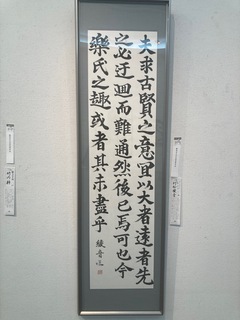 夫求古賢之意宜以大者遠者先
之必迂迴而難通然後已焉可也今
樂氏之趣或者其未盡乎